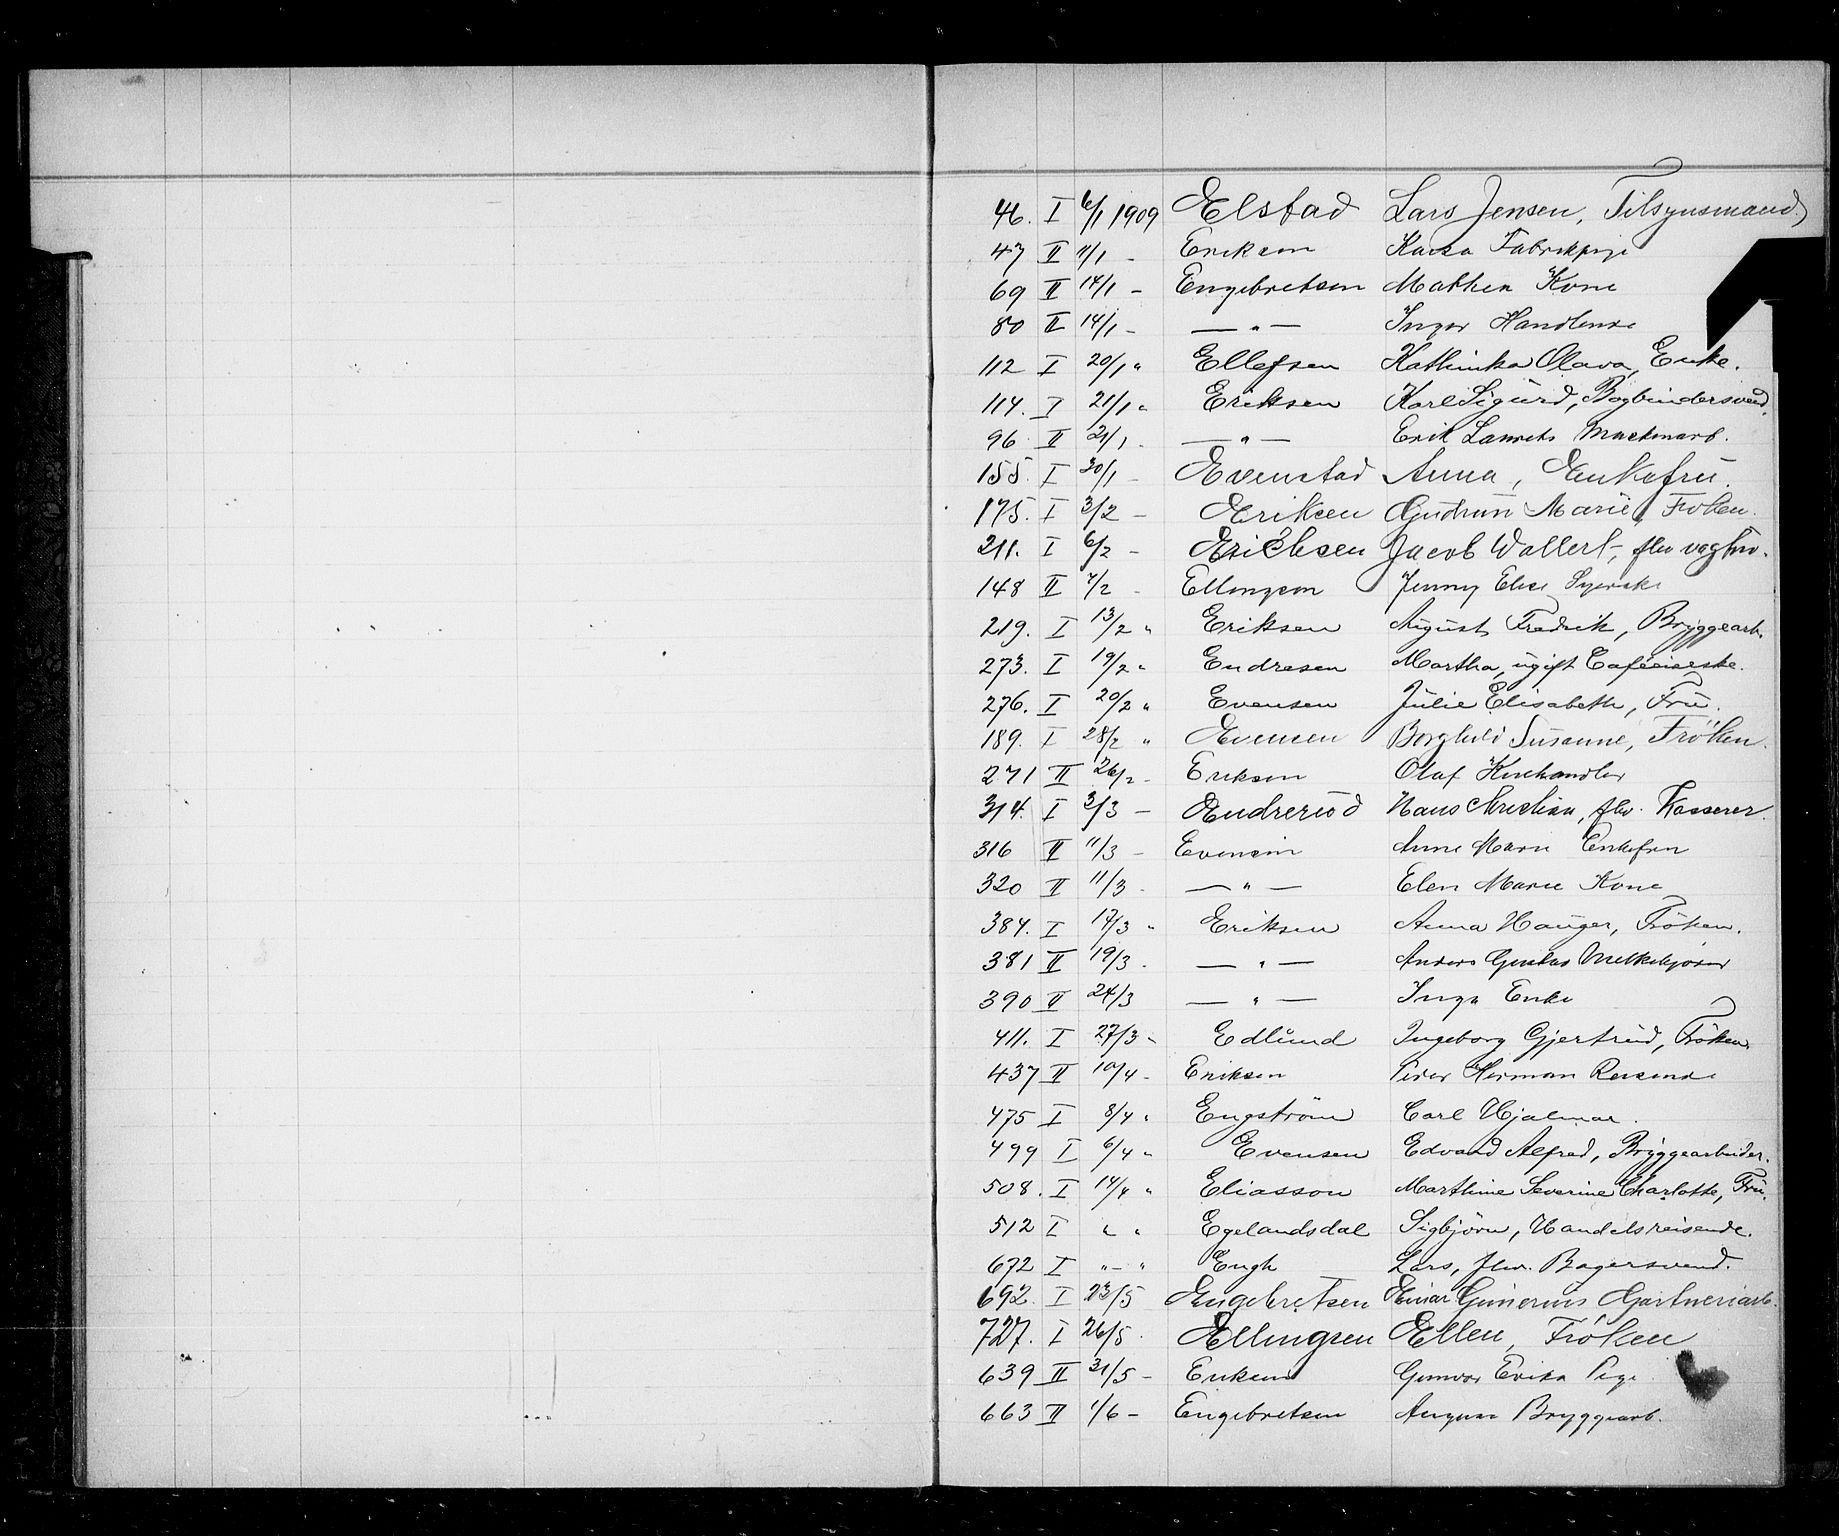 46. I 6/1 1909 Elstad Lars Jensen, Tilsynsmand.
47 II 11/1 - Eriksen Kaisa Fabrikpige
69 II 14/1 - Engebretsen Mathea Kone
80 II 14/1 - — " — Inger Handlende
112 I 20/1 " Ellefsen Kathinka Olava, Enke.
114. I 21/1 " Eriksen Karl Sigurd, Bogbindersvend.
96 II 21/1 - — " — Erik Laurits Maskinarb.
155. I 30/1 - Evenstad Anna, Enkefru.
175. I 3/2 - Eriksen Gudrun Marie, Frøken.
211. I 6/2 - Erichsen Jacob Wallert, flv vagtm.
148 II 7/2 - Ellingsen Jenny Elise Syerske
219. I 13/2 " Eriksen August Fredrik, Bryggearb.
273. I 19/2 " Endresen Martha, ugift Caféeierske.
276. I 20/2 " Evensen Julie Elisabeth, Fru.
189. I 28/2 " Evensen Borghild Susanne, Frøken.
271 II 26/2 - Eriksen Olaf
314. I 3/3 - Andrerud Hans Christian, flv. Kasserer.
316 II 11/3 - Evensen Anne Marie Enkefru
320 II 11/3 - — " — Elen Marie Kone
384. I 17/3 " Eriksen Anna Hauger, Frøken.
381 II 19/3 - — " — Anders Gustav Melkekjører
390 II 24/3 — " — Inga Enke
411. I 27/3 - Edlund Ingeborg Gjertrud, Frøken.
437 II 10/4 - Eriksen Peder Herman Reisende
475 I 8/4 " Engström Carl Hjalmar.
499 I 6/4 " Evensen Edvard Alfred, Bryggearbeider.
508. I 14/4 " Eliasson Marthine Severine Charlotte, Fru.
512 I " " Egelandsdal Sigbjörn, Handelsreisende.
672 I " - " Engh Lars, flv. Bagersvend.
692. I 23/5 Engebretsen Einar Gunerius Gartneriarb.
727. I 26/5 - Ellingsen Ellen, Frøken
639 II 31/5 - Eriksen Gunvor Erika Pige
663 II 1/6 - Engebretsen August Bryggearb.